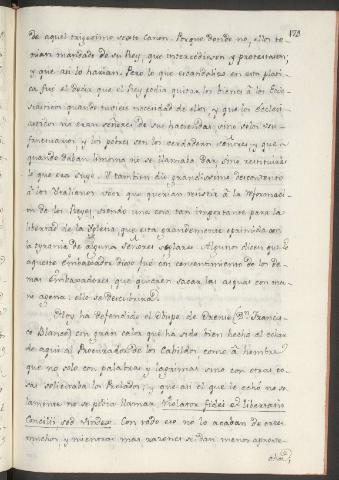 173
de aquel trigesimo septo canon. Porque donde no, ellos te-
nian mandado de su Rey, que intercediesen y protestasen;
y que asi lo harian. Pero lo que escandalizo en esta plati-
ca fue el decir que el Rey podia quitar los bienes à los Ecle-
siasticos quando tuviese necesidad de ellos, y que los eclesi-
asticos no eran señores de sus haciendas sino solos usu-
fructuarios, y los pobres son los verdaderos señores y que
quando daban limosna no se llamaba dar, sino restituirles
lo que era suyo. Y tambien dio grandissimo descontento
à los Italianos veer que querian resistir à la reformaci-
on de los Reyes, siendo una cosa tan importante para la
libertad de la Iglesia, que esta grandemente oprimida con
la tyrania de algunos Señores seglares. Algunos dicen que lo
aqueste Embaxador dixo fue con consentimiento de los de-
mas Embaxadores, que quieren sacar las asquas con ma-
no agena: ello se descubrira.
Oy ha defendido el Obispo de Orense (Dn Francis-
co Blanco) con gran calor que ha sido bien hecho el echar
de aqui al Procurador de los Cabildos como à hombre
que no solo con palabras y lagrimas sino con otras co-
sas solicitaba los Prelados; y que asi el que le echó no so-
lamente no se podia llamar Violator fidei et libertatis
Concilii, sed vindex. Con todo eso no lo acaban de creer
muchos, y mientras mas razones se dan menos aprove-
chan;